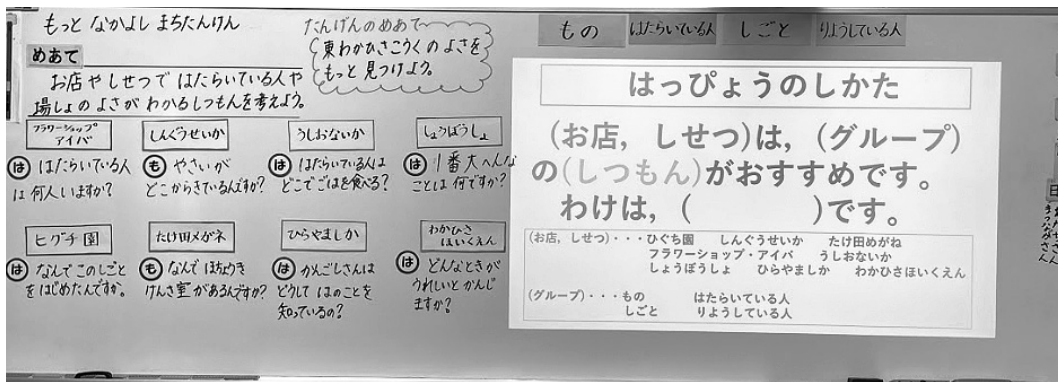 もっと なかよし まちたんけん
めあて
お店やしせつで はたらいている人や
場しょの よさが わかるしつもんを考えよう。
たんげんのめあて
東わかひさこうくのよさを
もっと見つけよう。
フラワーショップ
アイバ
は はたらいている人
は 何人いますか?
しんぐうせいか
も やさいが
どこからきているんですか?
うしおないか
は はたらいている人は
どこでごはを食べる?
しょうぼうしょ
は 1番大へんな
ことは 何ですか?
ヒグチ園
は なんで このしごと
をはじめたんですか。
たけ田メガネ
も なんで ほちょうき
けんさ室があるんですか?
ひらやましか
は かんごしさんは
どうして はのことを
知っているの?
わかひさ
ほいくえん
は どんなときが
うれしいと かんじ
ますか?
もの はたらいている人 しごと りようしている人
はっぴょうのしかた
(お店,しせつ)は,(グループ)
の(しつもん)がおすすめです。
わけは,( )です。
(お店,しせつ)・・・ひぐち園 しんぐうせいか たけ田めがね
フラワーショップ・アイバ うしおないか
しょうぼうしょ ひらやましか わかひさほいくえん
(グループ)・・・もの はたらいている人
しごと りようしている人
日